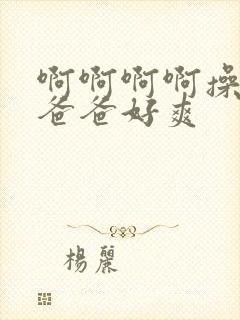 啊啊啊啊操
爸爸好爽
楊麗